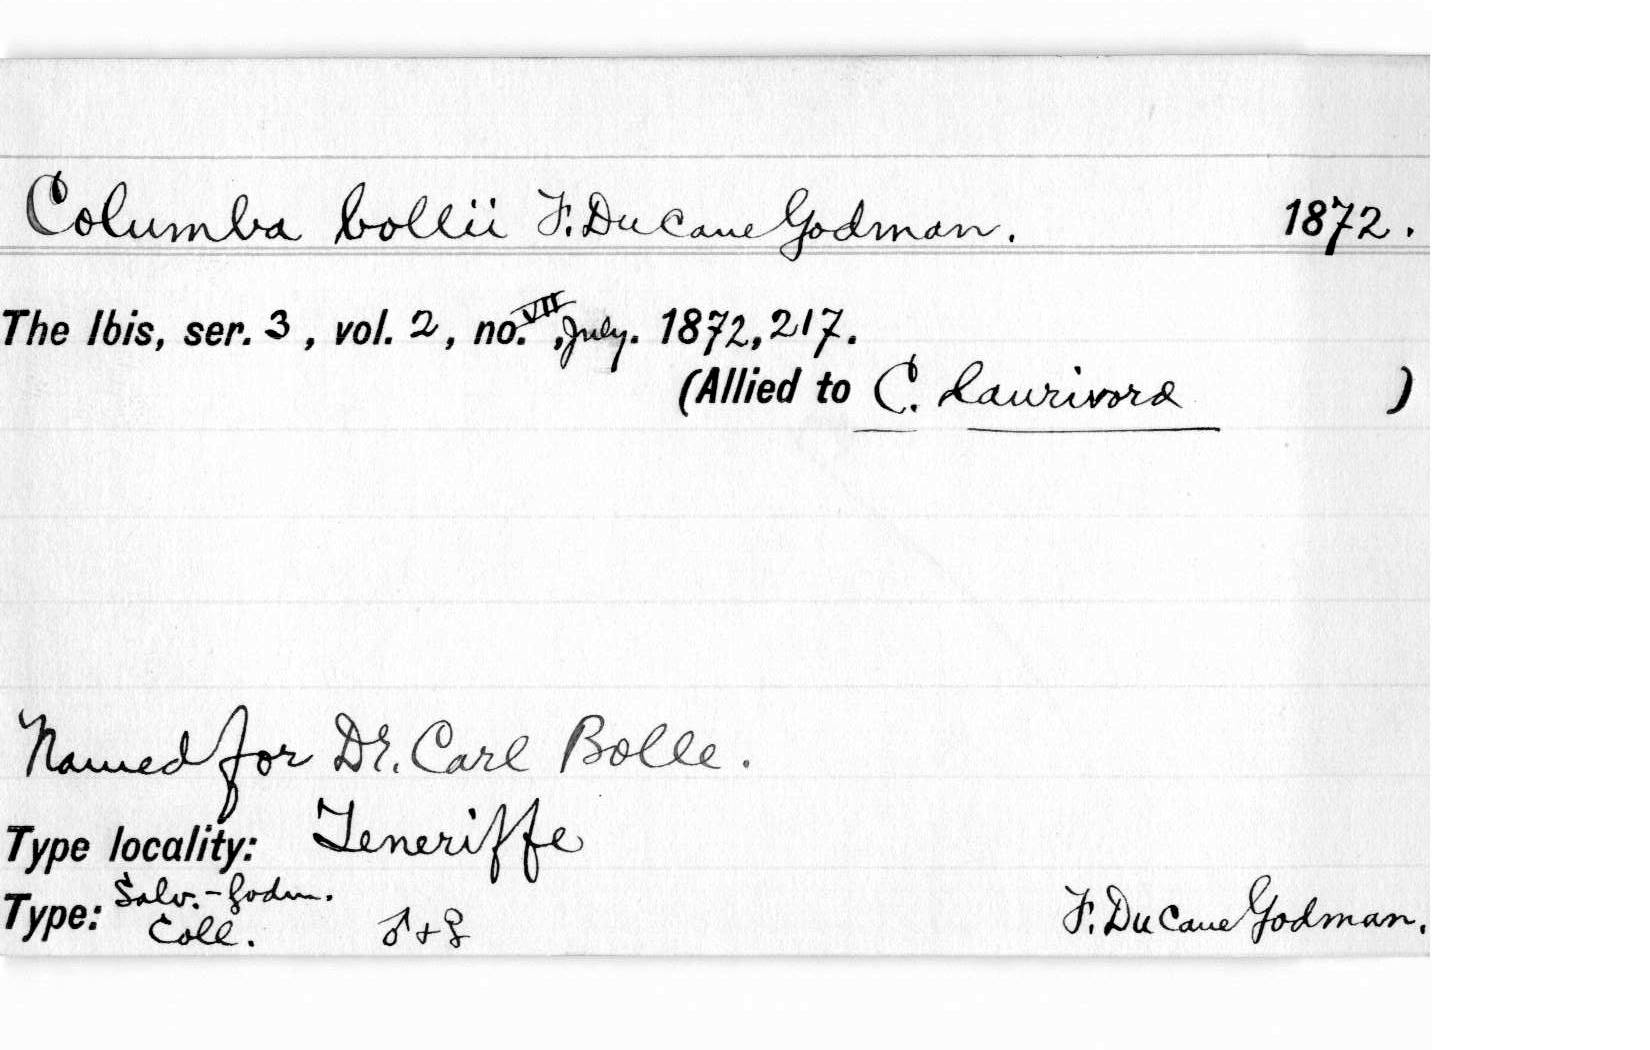 Columba bollii F. Du Cane Godman. 1872.
The Ibis, ser. 3, vol. 2, no. VII, July. 1872, 217.
(Allied to C. laurivora )
Named for Dr. Carl Bolle.
Type locality: Teneriffe
Type: Salv.-Godm. Coll. ♂ + ♀ F. Du Cane Godman.